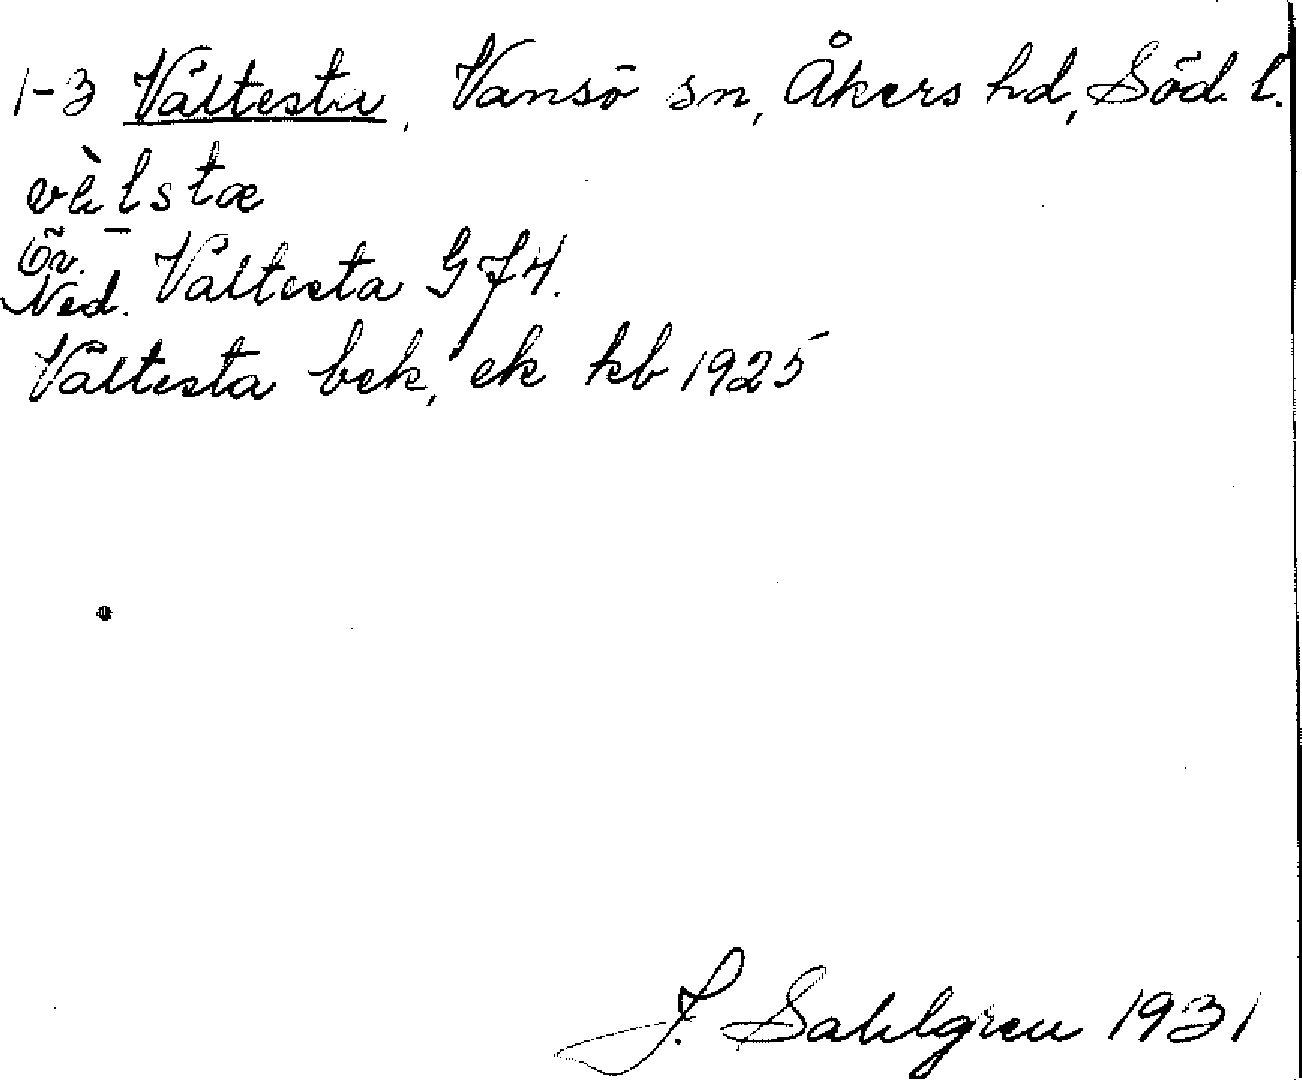 1-3 Valtesta, Vansö sn, Åkers hd, Söd. l.
vàlstæ
Öv. Ned. Valtesta G f 4.
Valtesta bek, ek kb 1925
J. Sahlgren 1931